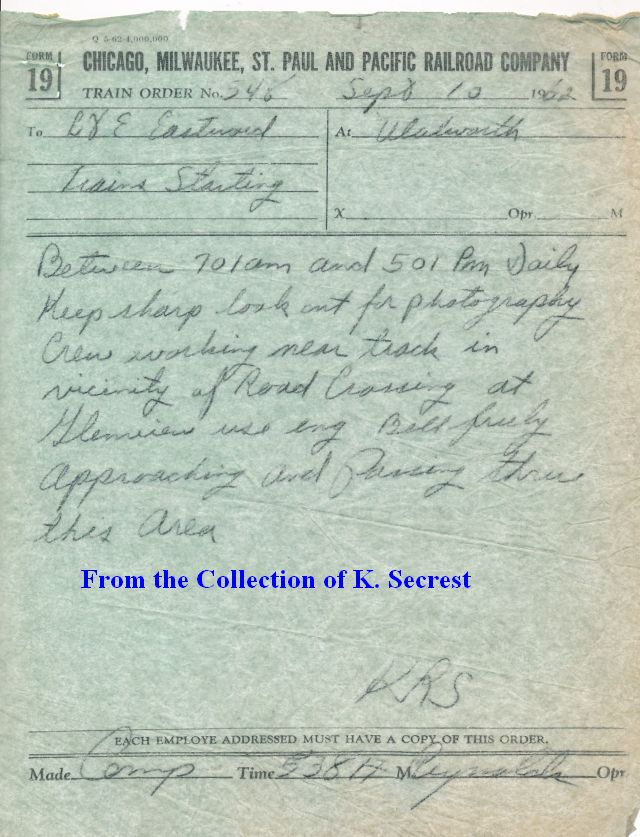 Q 5-62-4,000,000
FORM 19
CHICAGO, MILWAUKEE, ST. PAUL AND PACIFIC RAILROAD COMPANY
FORM 19
TRAIN ORDER No. 548 Sept 10 1962
To C&E Eastward
At Walworth
Trains Starting
X Opr. M
Between 701 am and 501 Pm Daily
Keep sharp look out for photography
Crew working near track in
vicinity of Road Crossing at
Glenview use eng Bell freely
approaching and Passing thru
this Area
From the Collection of K. Secrest
KRS
EACH EMPLOYE ADDRESSED MUST HAVE A COPY OF THIS ORDER.
Made Comp Time 538 A M Reynolds Opr